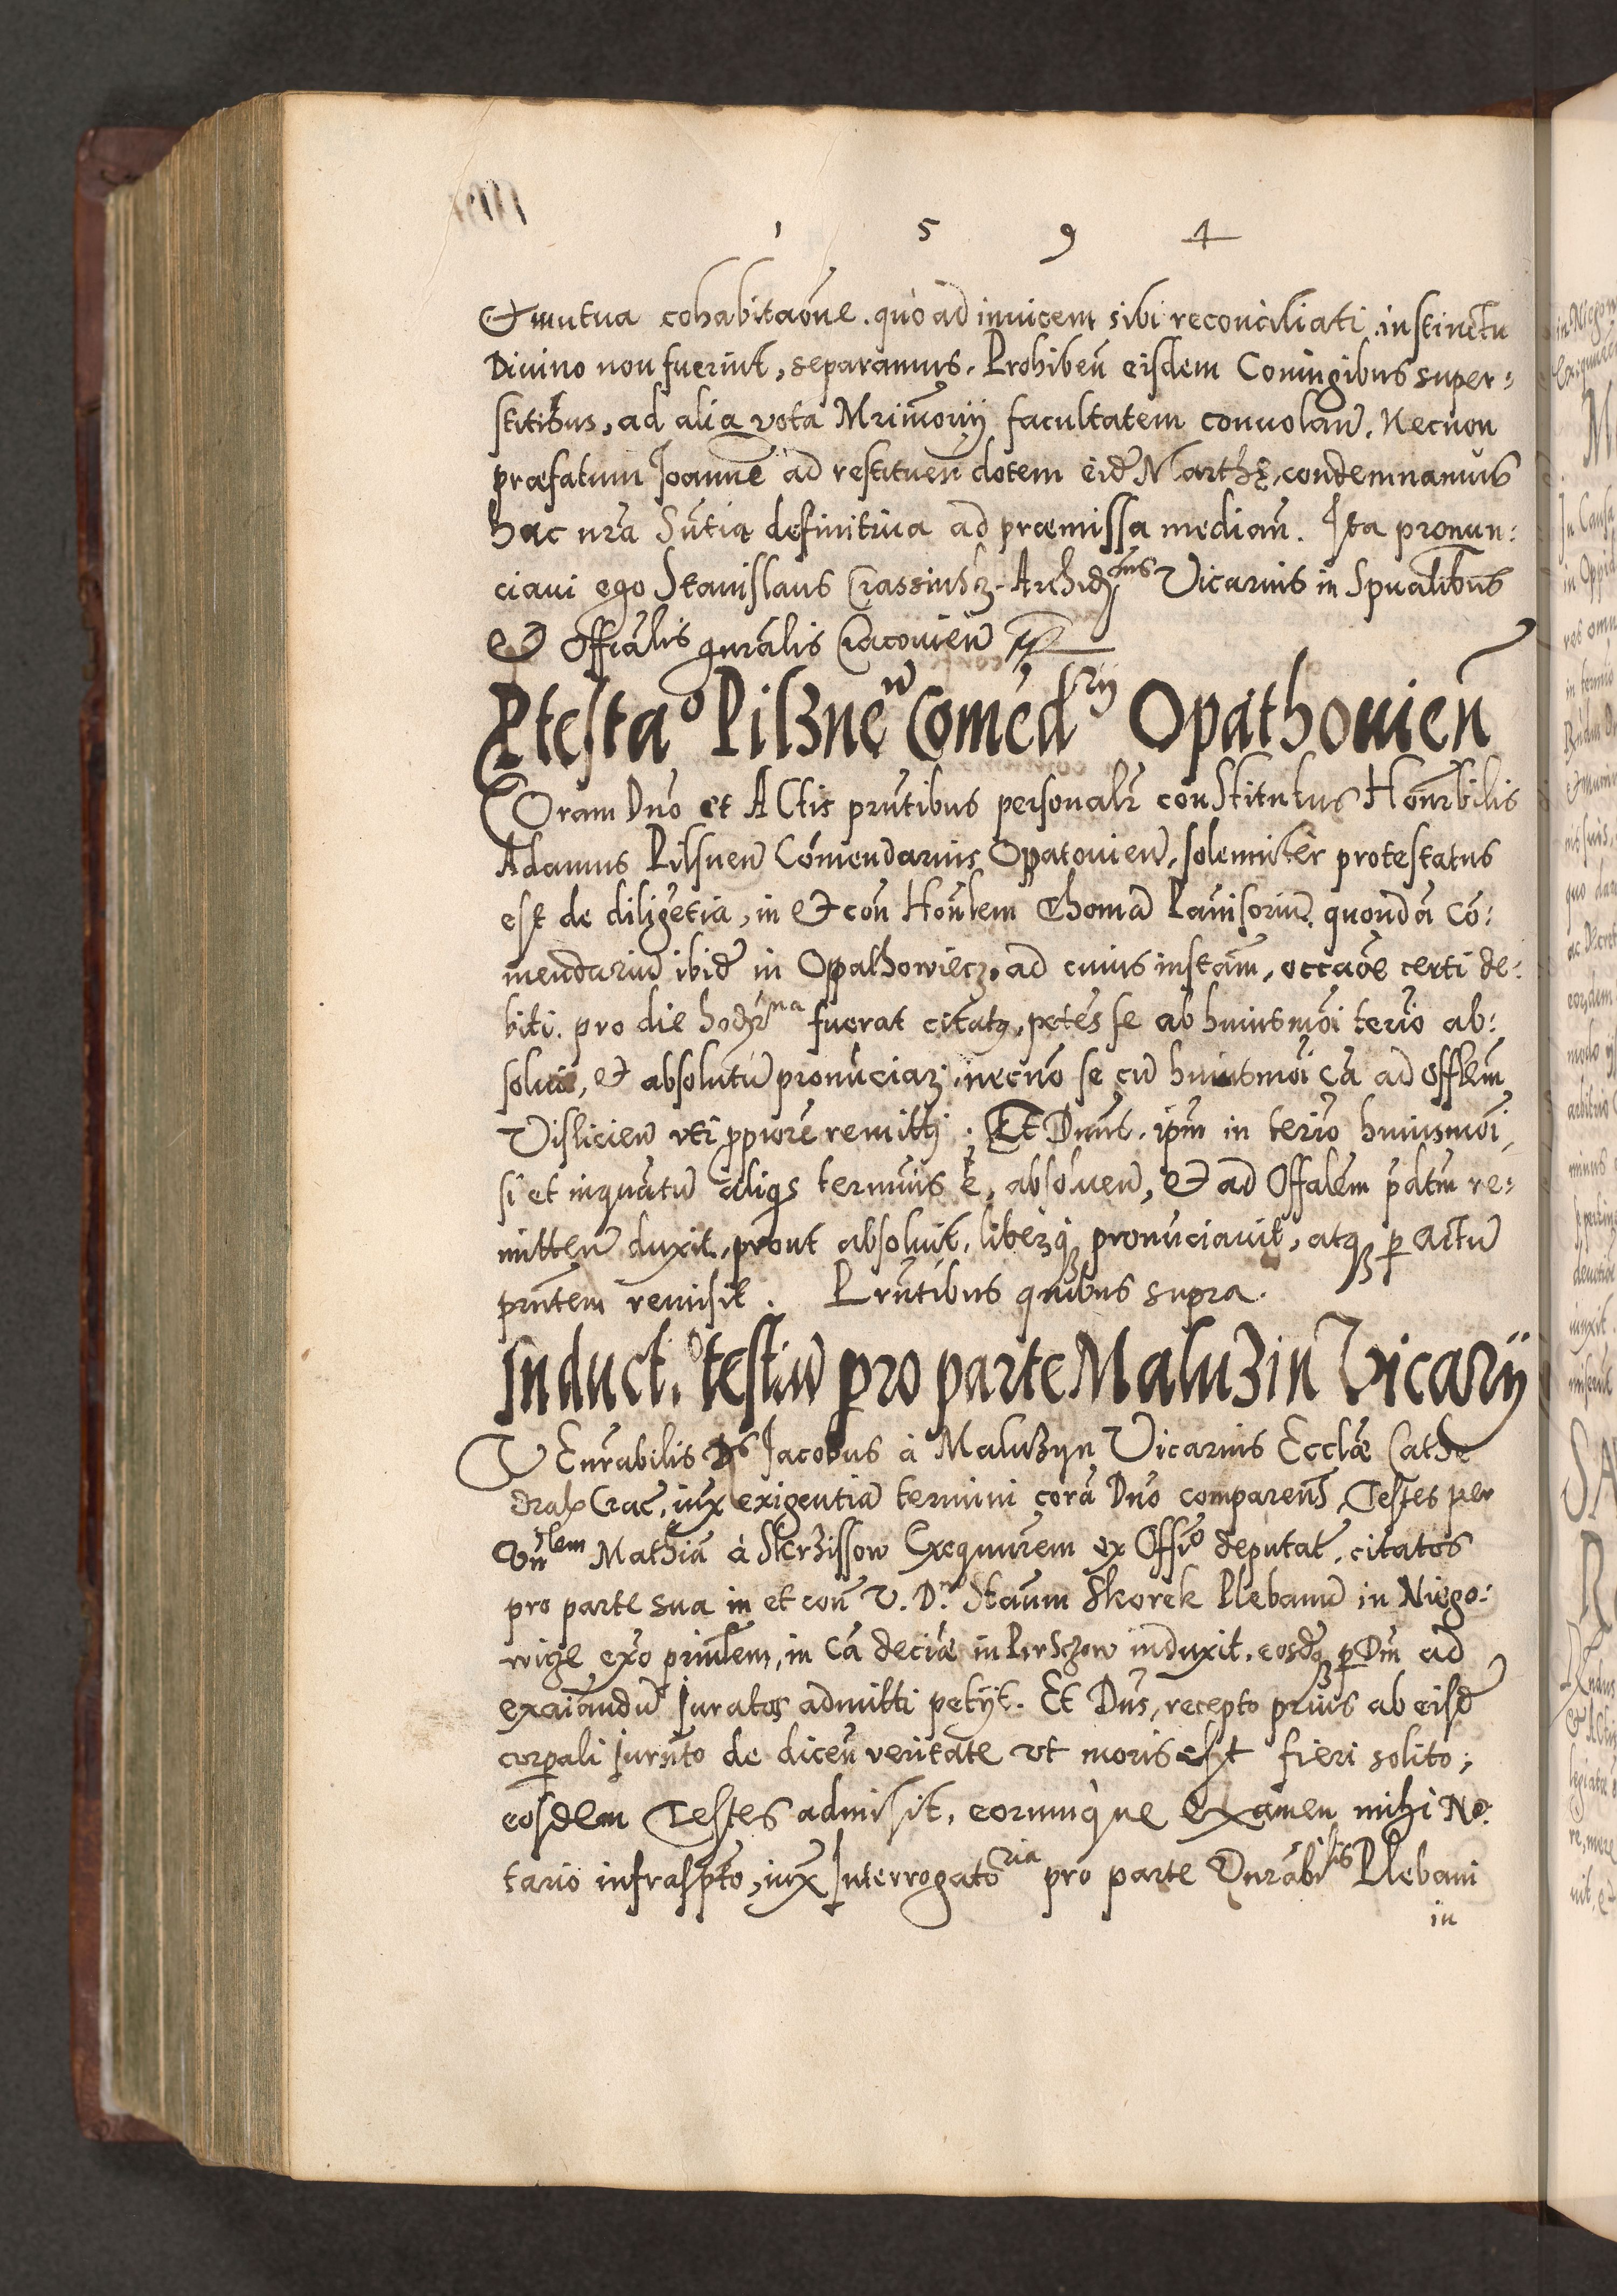 1 5 9 4
Et mutua cohabitaõne. quo ad inuicem sibi reconciliati instinctu
Diuino non fuerint, separamus. Prohibeñ eisdem Coniugibus super=
stitibus, ad alia vota Mrimõnij facultatem conuolañ. Necnon
præfatum Joannẽ ad restitueñ dotem eid̃ Marthę, condemnamus
hac nr̃a Sñtia definitiua ad præmissa mediañ. Ita pronun:
ciaui ego Stanislaus Crassinskj Archid. Vicarius in Spualibus
& Offiãlis gnrãlis Cracouieñ
Ptestaº Pilzneñ Comẽd rij Opathouieñ
Coram Dnõ et Actis prñtibus personalr̃ constitutus Honr̃bilis
Adamus Pilsneñ Cõmendarius Opatouieñ, solemniter protestatus
est de diligẽtia, in & coñ Honl̃em Thomã Pauisoriũ quondã Cõ:
mendariũ ibid̃ in Opathowiecz, ad cuius instãm, occaõe certi de:
biti. pro die hodier na fuerat citatq, petẽs se ab huiusmõi terĩo ab:
solui, et absolutũ pronũciarj, necnõ se cũ huiusmõi cã ad Offlem
Vislicieñ vti ppiorẽ remittj. Et Dnũs. ipm̃ in terĩo huiusmõi
si et inquãtũ aliqs terminus ẽ, absolueñ, & ad Offalem p̃dtm̃ re=
mitteñ duxit, prout absoluit, liberq̃ pronũciauit, atq₃ p actũ
prñtem remisit. Prñtibus quibus supra.
Induct.º testiũ pro parte Maluzin Vicarij
VEnr̃abilis Ds Jacobus à Maluzyn Vicarius Ecclæ Cathe
dralx Crac̃, iux̃ exigentiã termini corã Dnõ comparens̃, Testes per
Vnlem Mathiã à Skrzissow Exequũrem ex Offiõ deputat̃, citatos
pro parte sua in et coñ V. D. Staũm Skorek Plebanũ in Niego:
wige ex̃o princl̃em, in cã deciæ in Pirszow induxit, eosdq₃ p Dm̃ ad
exaiãndũ iuratos admitti petijt. Et Dñs, recepto prius ab eisd̃
corpali iurnt̃o de diceñ veritate vt moris est fieri solito;
eosdem Testes admisit, eorumque examen mihi No:
tario infraspto, iux̃ Interrogato ria pro parte Vnrãbilis Plebani
in